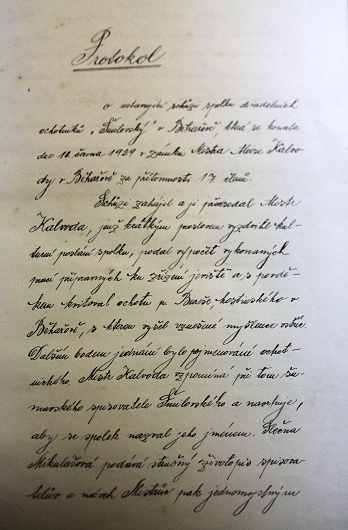 Protokol
o ustavující schůzi spolku divadelních
ochotníků „Šmilovský" v Běhařově, která se konala
dne 10. června 1929 v zámku Mistra Aloise Kalvo-
dy v Běhařově za přítomnosti 17 členů.
Schůzi zahájil a jí předsedal Mistr
Kalvoda, jenž krátkým proslovem vyzdvihl kul-
turní poslání spolku, podal výpočet vykonaných
prací přípravných ku zřízení jeviště a s povdě-
kem kvitoval ochotu p. hostinského v
Běhařově, s kterou vyšel vznešené myšlence vstříc.
Dalším bodem jednání bylo pojmenování ochot-
nického. Mistr Kalvoda vzpomíná při tom šu-
mavského spisovatele Šmilovského a navrhuje,
aby se spolek nazval jeho jménem. Slečna
Mikulášová podává stručný životopis spisova-
telův a návrh Mistrův pak jednomyslným